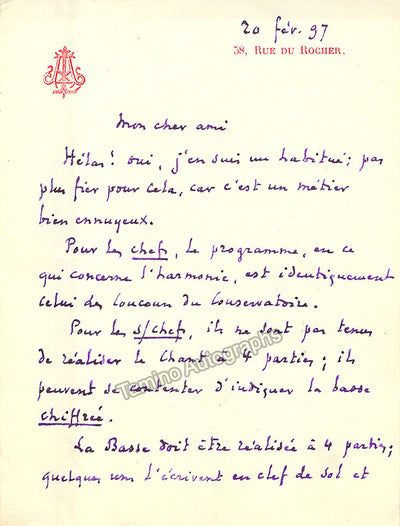 20 fév. 97
58, RUE DU ROCHER.
Mon cher ami
Hélas! oui, j'en suis un habitué; pas
plus fier pour cela, car c'est un métier
bien ennuyeux.
Pour les chefs, le programme, en ce
qui concerne l'harmonie, est identiquement
celui des Concours du Conservatoire.
Pour les s/chefs, ils ne sont pas tenus
de réaliser le Chant à 4 parties; ils
peuvent se contenter d'indiquer la basse
chiffrée.
La Basse doit être réalisée à 4 parties;
quelques uns l'écrivent en clef de sol et
Tamino Autographs